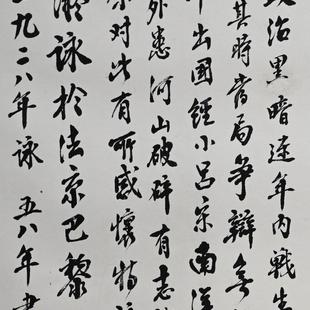 政治黑暗連年內戰
其時當局爭辯
出國經小呂宋南洋
外患河山破碎有志
對此有所感懷特
詠於法京巴黎
九二八年詠 五八年書